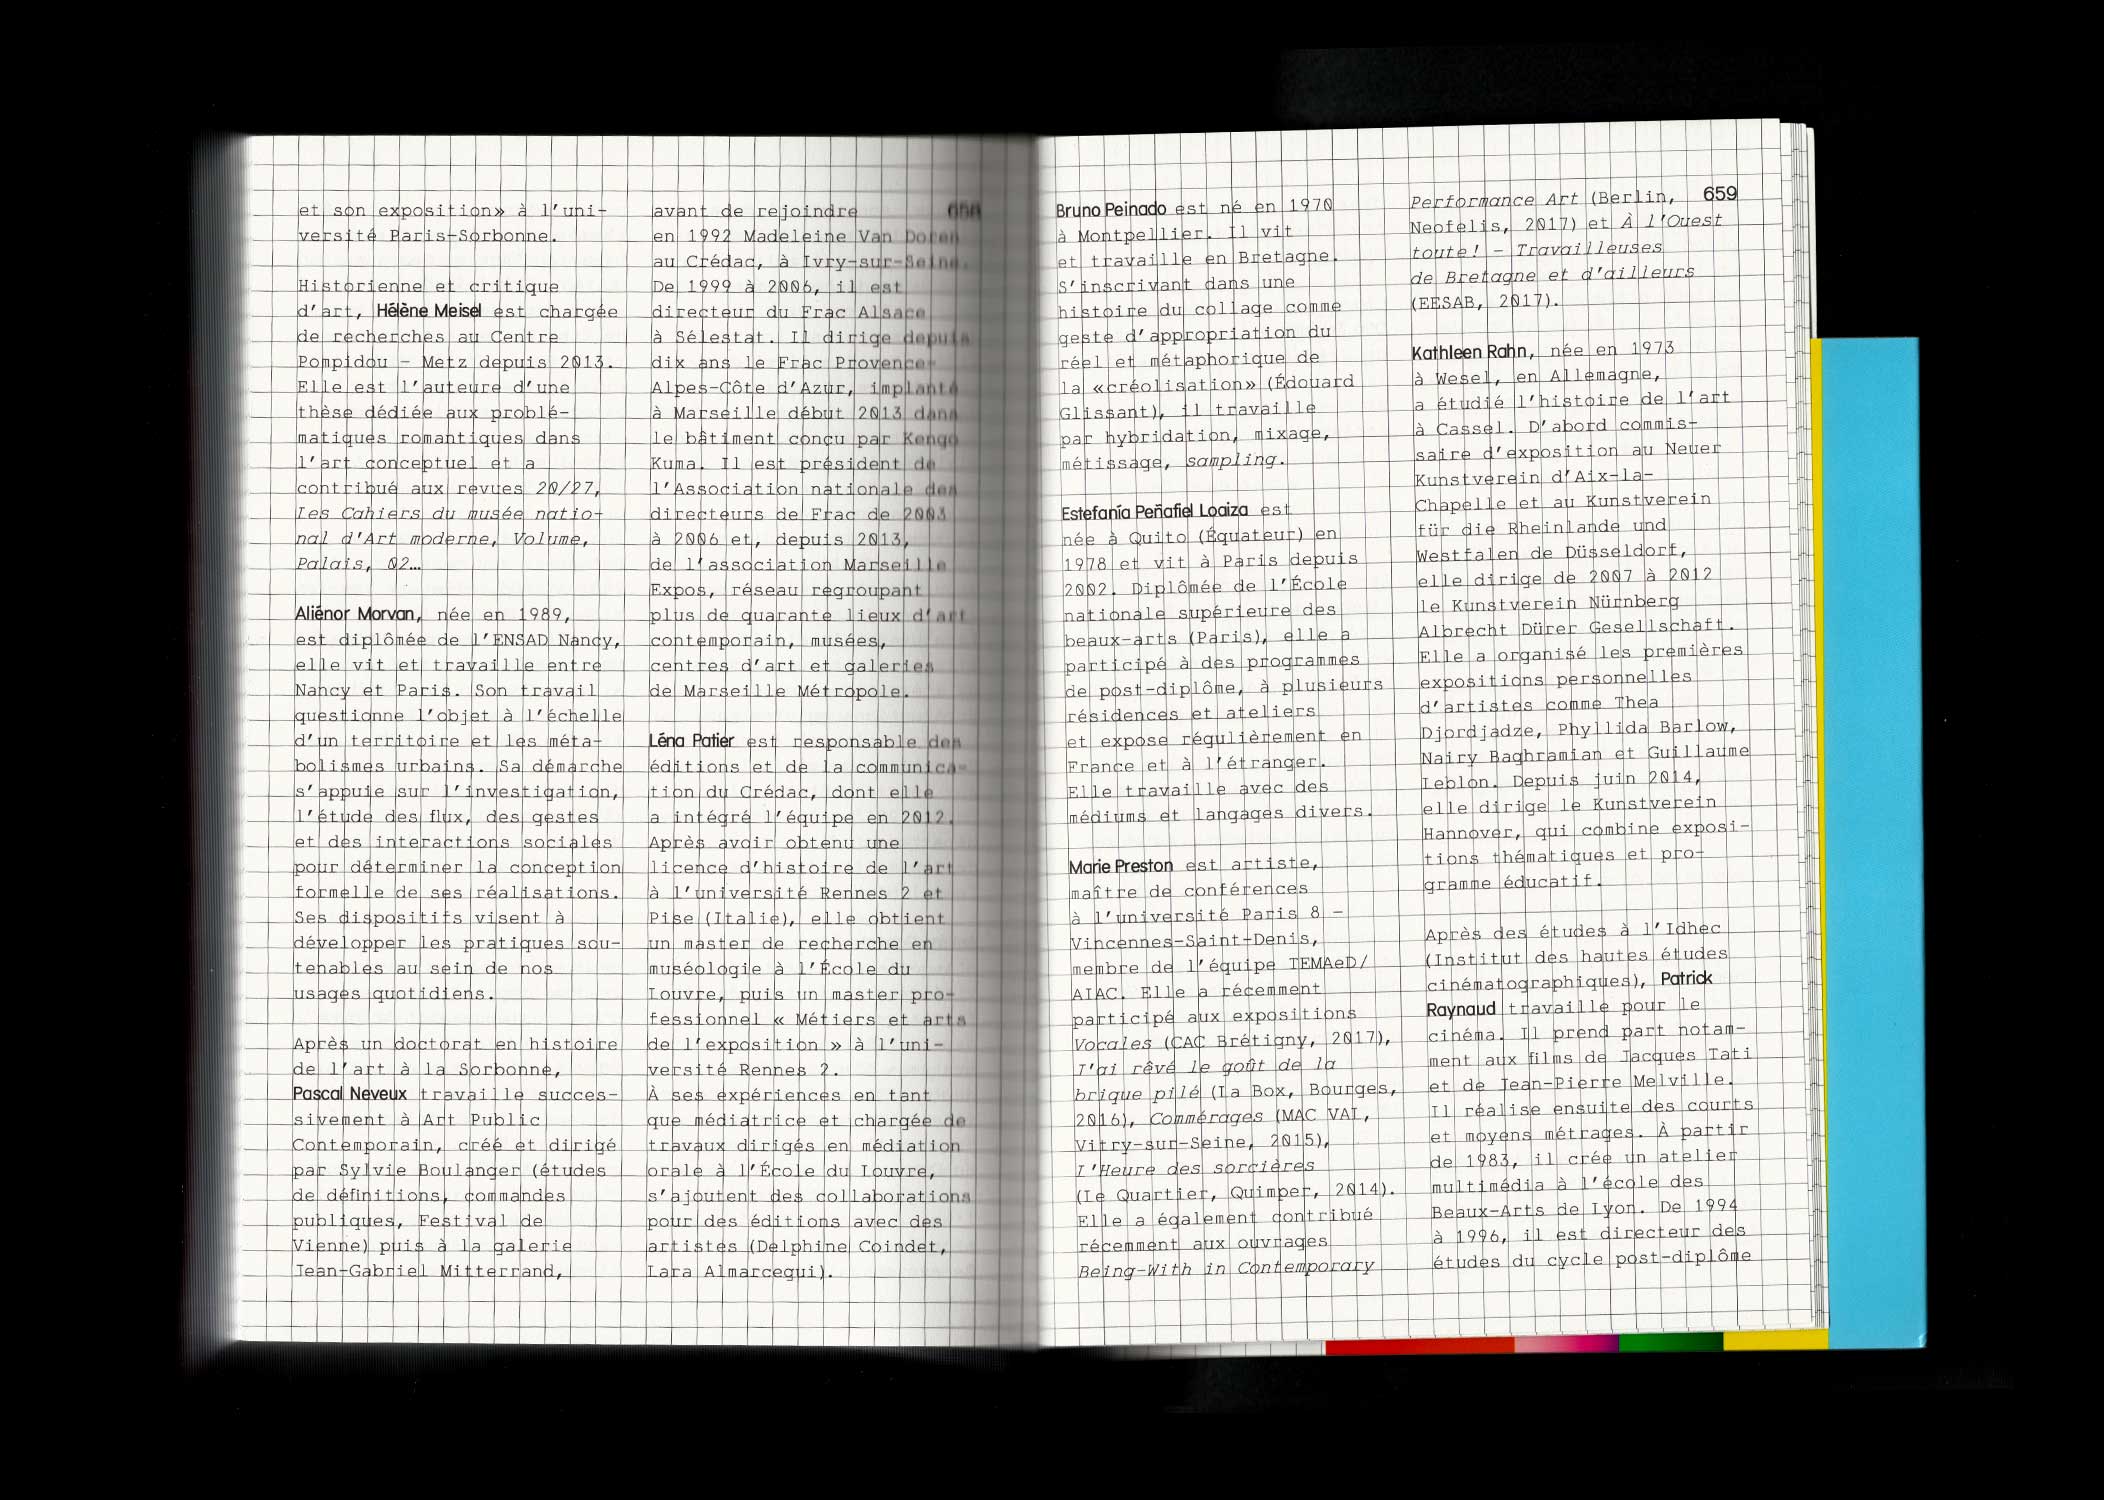 et son exposition» à l'uni-
versité Paris-Sorbonne.
Historienne et critique
d'art, Hélène Meisel est chargée
de recherches au Centre
Pompidou – Metz depuis 2013.
Elle est l'auteure d'une
thèse dédiée aux problé-
matiques romantiques dans
l'art conceptuel et a
contribué aux revues 20/27,
Les Cahiers du musée natio-
nal d'Art moderne, Volume,
Palais, 02…
Aliénor Morvan, née en 1989,
est diplômée de l'ENSAD Nancy,
elle vit et travaille entre
Nancy et Paris. Son travail
questionne l'objet à l'échelle
d'un territoire et les méta-
bolismes urbains. Sa démarche
s'appuie sur l'investigation,
l'étude des flux, des gestes
et des interactions sociales
pour déterminer la conception
formelle de ses réalisations.
Ses dispositifs visent à
développer les pratiques sou-
tenables au sein de nos
usages quotidiens.
Après un doctorat en histoire
de l'art à la Sorbonne,
Pascal Neveux travaille succes-
sivement à Art Public
Contemporain, créé et dirigé
par Sylvie Boulanger (études
de définitions, commandes
publiques, Festival de
Vienne) puis à la galerie
Jean-Gabriel Mitterrand,
658
avant de rejoindre
en 1992 Madeleine Van Doren
au Crédac, à Ivry-sur-Seine.
De 1999 à 2006, il est
directeur du Frac Alsace
à Sélestat. Il dirige depuis
dix ans le Frac Provence-
Alpes-Côte d'Azur, implanté
à Marseille début 2013 dans
le bâtiment conçu par Kengo
Kuma. Il est président de
l'Association nationale des
directeurs de Frac de 2003
à 2006 et, depuis 2013,
de l'association Marseille
Expos, réseau regroupant
plus de quarante lieux d'art
contemporain, musées,
centres d'art et galeries
de Marseille Métropole.
Léna Patier est responsable des
éditions et de la communica-
tion du Crédac, dont elle
a intégré l'équipe en 2012.
Après avoir obtenu une
licence d'histoire de l'art
à l'université Rennes 2 et
Pise (Italie), elle obtient
un master de recherche en
muséologie à l'École du
Louvre, puis un master pro-
fessionnel « Métiers et arts
de l'exposition » à l'uni-
versité Rennes 2.
À ses expériences en tant
que médiatrice et chargée de
travaux dirigés en médiation
orale à l'École du Louvre,
s'ajoutent des collaborations
pour des éditions avec des
artistes (Delphine Coindet,
Lara Almarcegui).
Bruno Peinado est né en 1970
à Montpellier. Il vit
et travaille en Bretagne.
S'inscrivant dans une
histoire du collage comme
geste d'appropriation du
réel et métaphorique de
la «créolisation» (Édouard
Glissant), il travaille
par hybridation, mixage,
métissage, sampling.
Estefanía Peñafiel Loaiza est
née à Quito (Équateur) en
1978 et vit à Paris depuis
2002. Diplômée de l'École
nationale supérieure des
beaux-arts (Paris), elle a
participé à des programmes
de post-diplôme, à plusieurs
résidences et ateliers
et expose régulièrement en
France et à l'étranger.
Elle travaille avec des
médiums et langages divers.
Marie Preston est artiste,
maître de conférences
à l'université Paris 8 –
Vincennes-Saint-Denis,
membre de l'équipe TEMAeD/
AIAC. Elle a récemment
participé aux expositions
Vocales (CAC Brétigny, 2017),
J'ai rêvé le goût de la
brique pilé (La Box, Bourges,
2016), Commérages (MAC VAL,
Vitry-sur-Seine, 2015),
L'Heure des sorcières
(Le Quartier, Quimper, 2014).
Elle a également contribué
récemment aux ouvrages
Being-With in Contemporary
659
Performance Art (Berlin,
Neofelis, 2017) et À l'Ouest
toute! – Travailleuses
de Bretagne et d'ailleurs
(EESAB, 2017).
Kathleen Rahn, née en 1973
à Wesel, en Allemagne,
a étudié l'histoire de l'art
à Cassel. D'abord commis-
saire d'exposition au Neuer
Kunstverein d'Aix-la-
Chapelle et au Kunstverein
für die Rheinlande und
Westfalen de Düsseldorf,
elle dirige de 2007 à 2012
le Kunstverein Nürnberg
Albrecht Dürer Gesellschaft.
Elle a organisé les premières
expositions personnelles
d'artistes comme Thea
Djordjadze, Phyllida Barlow,
Nairy Baghramian et Guillaume
Leblon. Depuis juin 2014,
elle dirige le Kunstverein
Hannover, qui combine exposi-
tions thématiques et pro-
gramme éducatif.
Après des études à l'Idhec
(Institut des hautes études
cinématographiques), Patrick
Raynaud travaille pour le
cinéma. Il prend part notam-
ment aux films de Jacques Tati
et de Jean-Pierre Melville.
Il réalise ensuite des courts
et moyens métrages. À partir
de 1983, il crée un atelier
multimédia à l'école des
Beaux-Arts de Lyon. De 1994
à 1996, il est directeur des
études du cycle post-diplôme